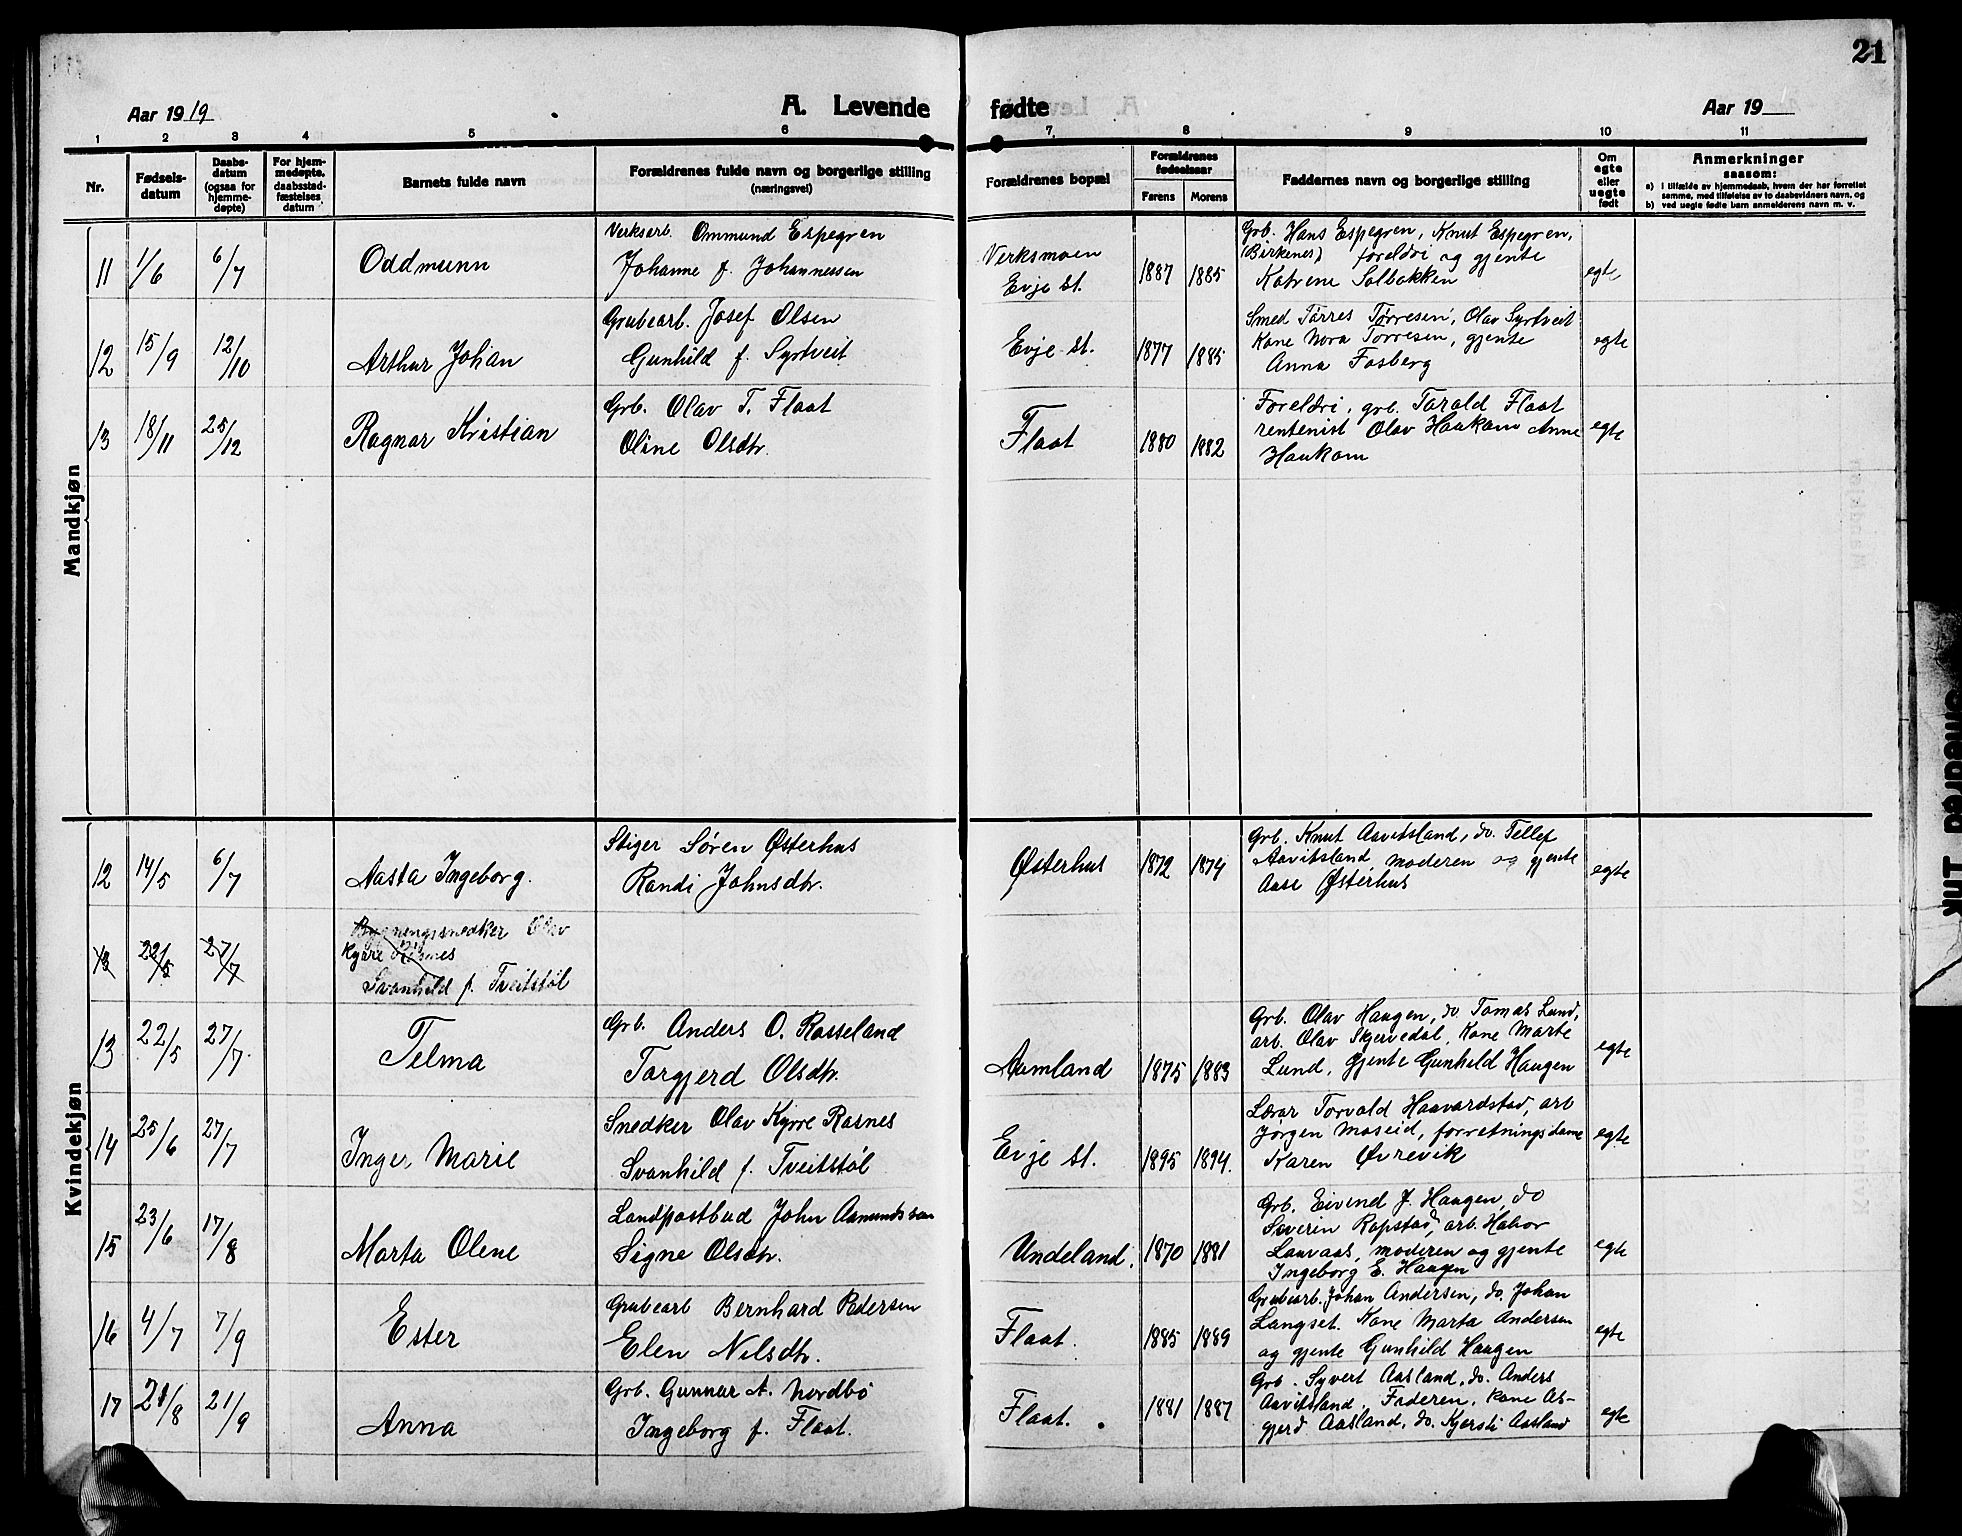 21
Aar 1919
A. Levende fødte
Aar 19
1 2 3 4 5 6 7 8 9 10 11
Nr.
Fødsels-
datum
Daabs-
datum
(ogsaa for
hjemme-
døpte)
For hjem-
medøpte.
daabsstad-
fæstelses
datum
Barnets fulde navn
Forældrenes fulde navn og borgerlige stilling
(næringsvei)
Forældrenes bopæl
Forældrenes
fødselsaar
Farens Morens
Faddernes navn og borgerlige stilling
Om
egte
eller
uegte
født
Anmerkninger
saasom:
a) i tilfælde av hjemmedaab, hvem der har forrettet
samme, med tilføielse av to daabsvidners navn, og
b) ved uegte fødte barn anmelderens navn m. v.
Mandkjøn
11 1/6 6/7 Oddmunn
Verksarb. Ommund Espegren
Johanne f. Johannessen
Verksmoen
Evje st.
1887 1885
Grb. Hans Espegren, Knut Espegren,
(Birkenes) foreldri og gjente
Katrine Solbakken
egte
12 15/9 12/10 Arthur Johan
Grubearb. Josef Olsen
Gunhild f. Syrtveit
Evje st.
1877 1885
Smed Tørres Tørresen, Olav Syrtveit
Kone Nora Tørresen, gjente
Anna Fosberg
egte
13 18/11 25/12 Ragnar Kristian
Grb. Olav T. Flaat
Oline Olsdtr.
Flaat
1880 1882
Foreldri, grb. Tarald Flaat
rentenist Olav Haukom Anne
Haukom
egte
Kvindekjøn
12 14/5 6/7 Aasta Ingeborg.
Stiger Søren Østerhus
Randi Johnsdtr.
Østerhus
1872 1874
Grb. Knut Aavitsland, do. Tellef
Aavitsland, moderen og gjente
Aase Østerhus
egte
13 22/5 27/7
Bygningssnedker Olav
Kyrre Rosnes
Svanhild f. Tveitstøl
13 22/5 27/7 Telma
Grb. Anders O. Rosseland
Torgjerd Olsdtr.
Aamland
1875 1883
Grb. Olav Haugen, do Tomas Lund,
arb. Olav Skjervedal, Kone Marte
Lund, gjente Gunhild Haugen
egte
14 25/6 27/7 Inger Marie
Snedker Olav Kyrre Rosnes
Svanhild f. Tveitstøl
Evje st.
1895 1894.
Lærar Torvald Haavardstad, arb
Jørgen Moseid, forretningsdame
Karen Øvrevik
egte
15 23/6 17/8 Marta Olene
Landpostbud John Aamundsson
Signe Olsdtr.
Undeland.
1870 1881
Grb. Eivind J. Haugen, do
Severin Ropstad, arb. Halvor
Lauvaas, moderen og gjente
Ingeborg E. Haugen
egte
16 4/7 7/9 Ester
Grubearb Bernhard Pedersen
Elen Nilsdtr.
Flaat.
1885 1889
Grubearb. Johan Andersen, do. Johan
Langset. Kone Marta Andersen
og gjente Gunhild Haugen
egte
17 21/8 21/9 Anna
Grb. Gunnar A. Nordbø
Ingeborg f. Flaat.
Flaat.
1881 1887
Grb. Syvert Aasland, do. Anders
Aavitsland, Faderen, Kone As-
gjerd Aasland, do. Kjersti Aasland
egte